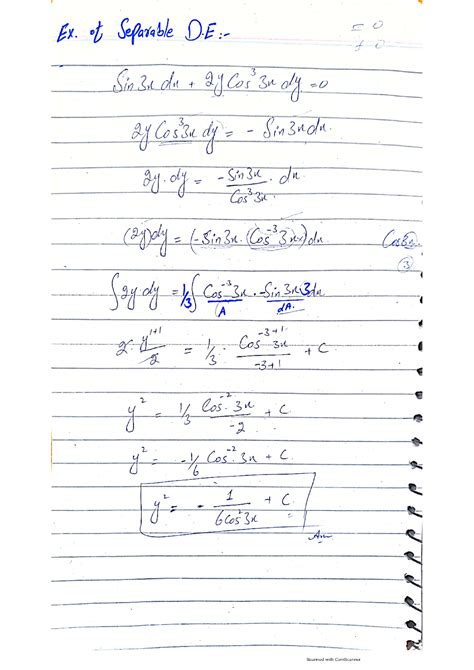 Ex. of Separable D.E:-
= 0
≠ 0
Sin3x dx + 2yCos³3x dy = 0
2y Cos³3x dy = - Sin3x dx.
2y.dy = -Sin3x/Cos³3x . dx
(2y)dy = (-Sin3x.(Cos⁻³3x))dx
③
∫2y dy = 1/3∫ Cos⁻³3x . -Sin3x.3dx
A dA.
2. y¹⁺¹/2 = 1/3 . Cos⁻³⁺¹3x/-3+1 + C
y² = 1/3 Cos⁻²3x/-2 + C
y² = -1/6 Cos⁻²3x + C.
y² = - 1/6Cos²3x + C.
Ans
Scanned with CamScanner